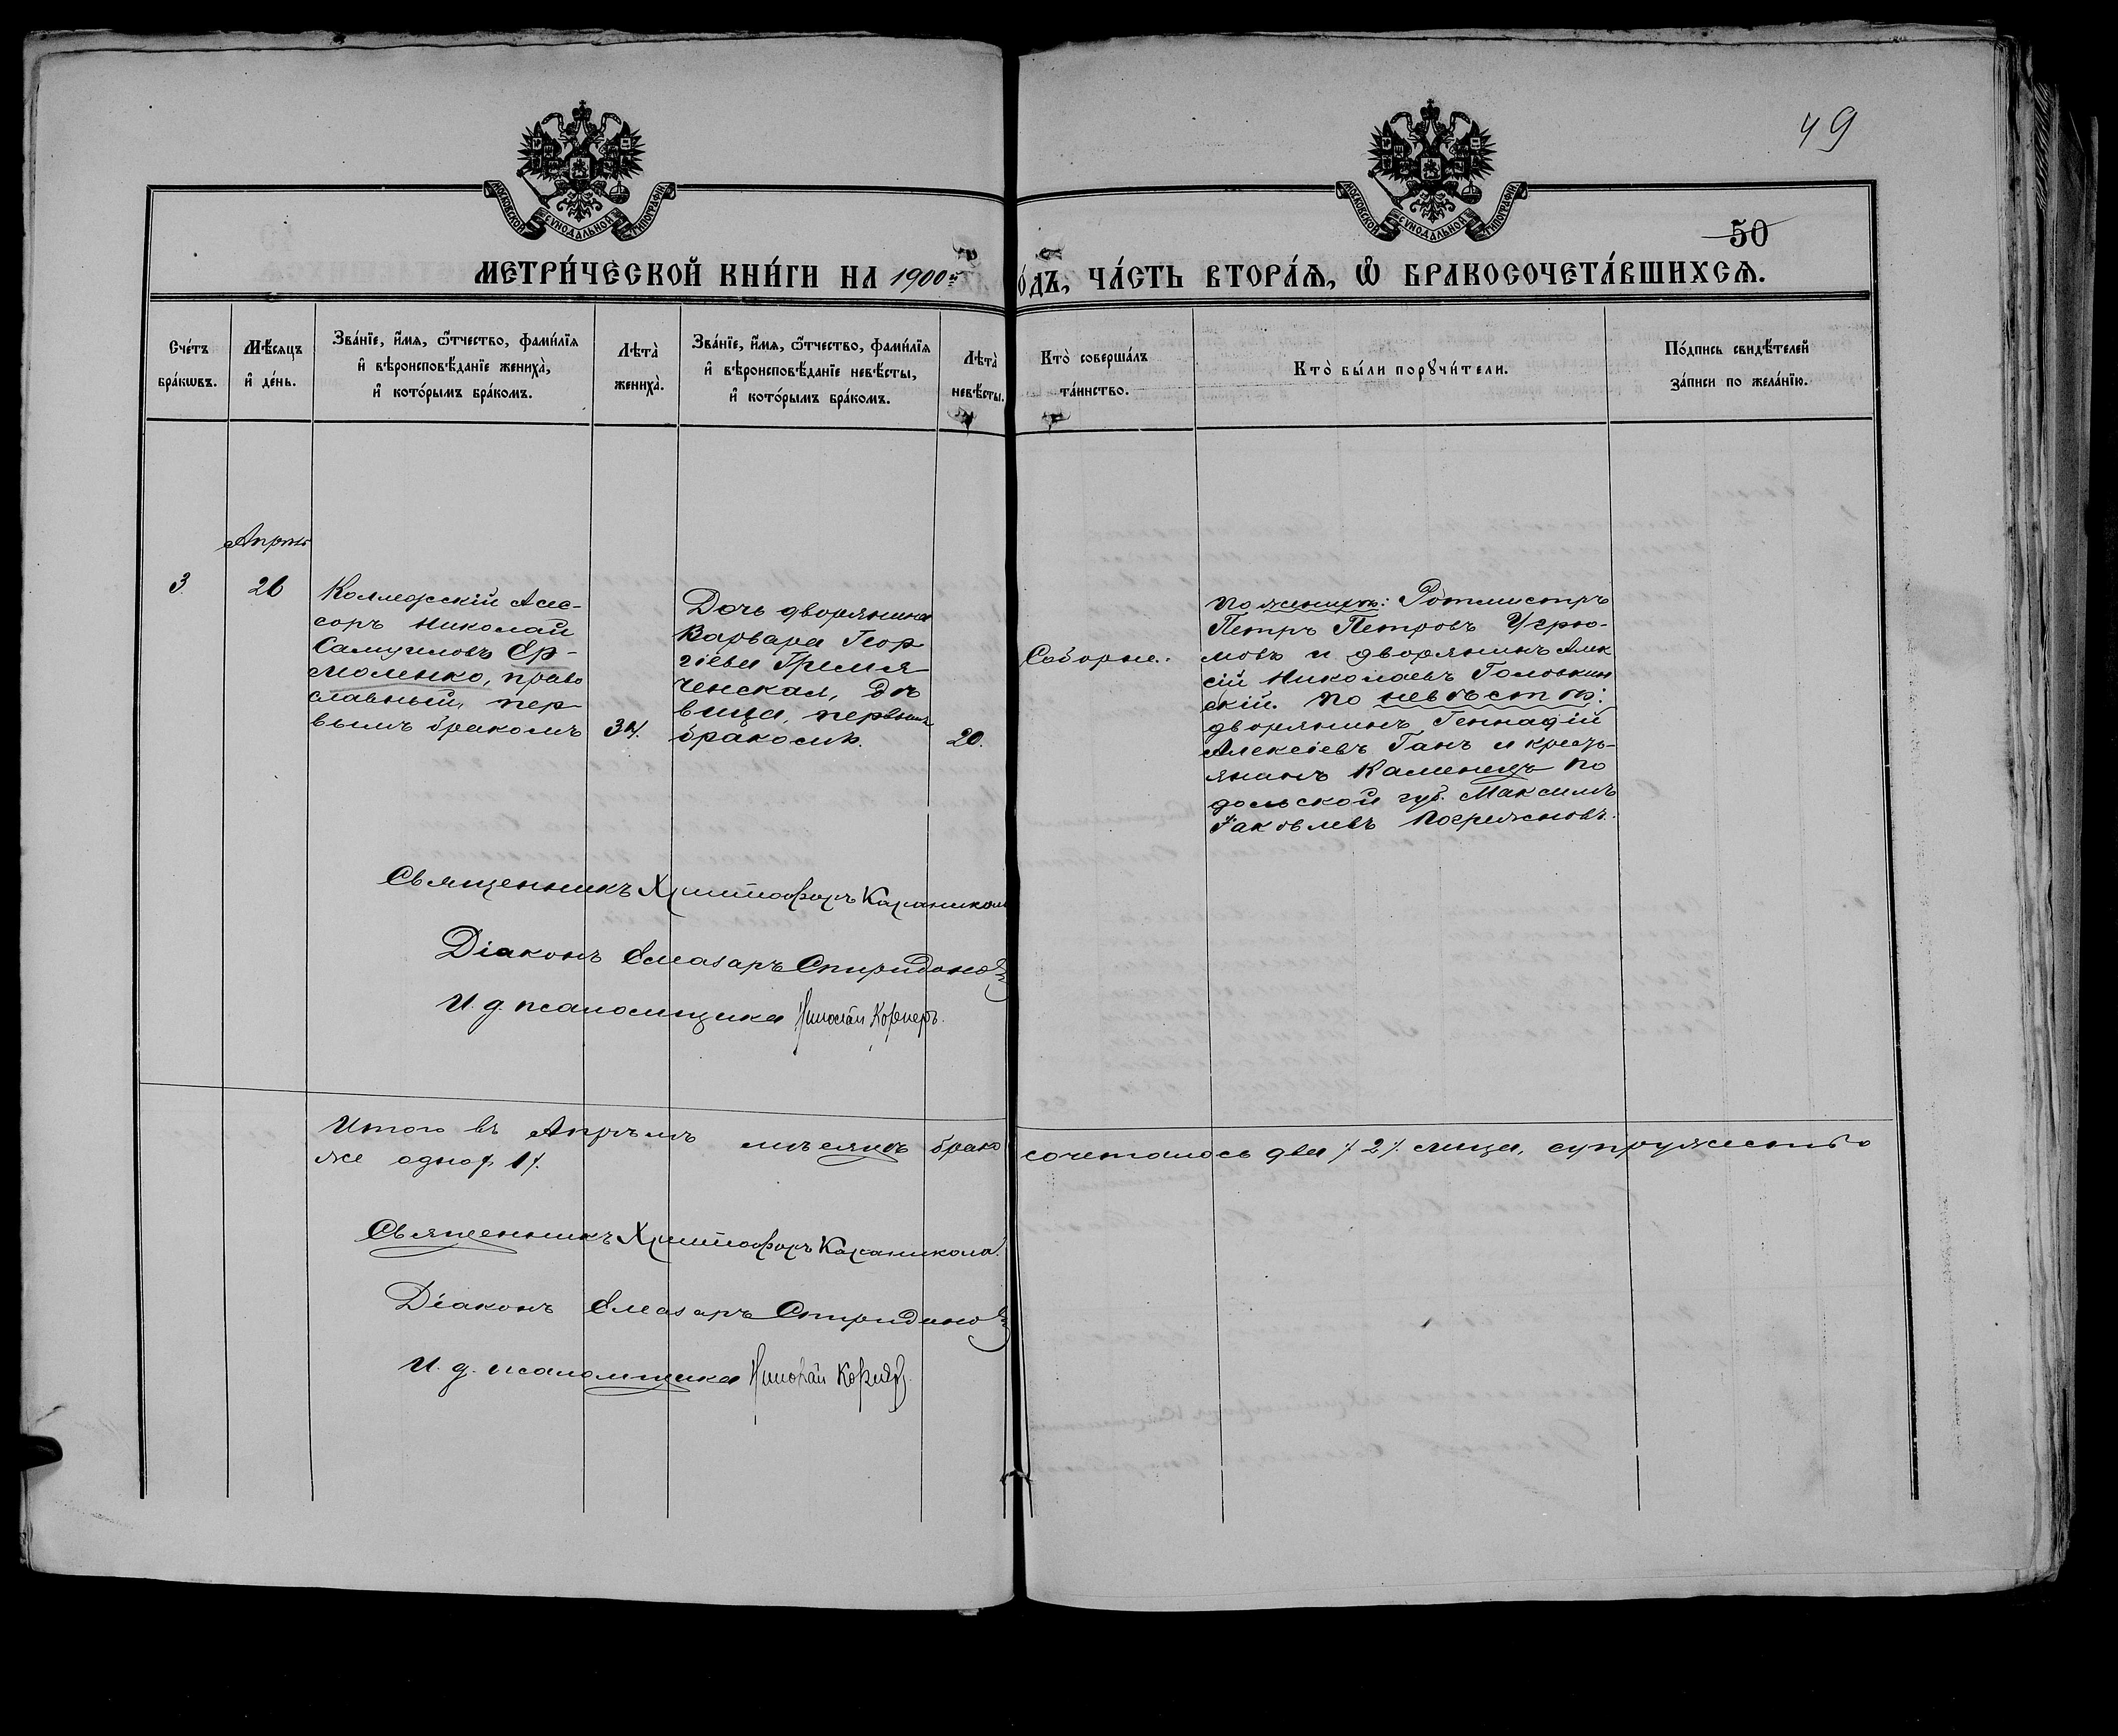 49
МОСКОВСКОЙ СУНОДАЛЬНОЙ ТИПОГРАФІИ
МОСКОВСКОЙ СУНОДАЛЬНОЙ ТИПОГРАФІИ
50
МЕТРИ́ЧЕСКОЙ КНИ́ГИ НА 1900й
О́ДЪ, ЧА́СТЬ ВТОРА́Ѧ, Ѡ҆ БРАКОСОЧЕТА́ВШИХСѦ.
Сче́тъ
бра́кѡвъ.
Мѣ́сяцъ
и҆ де́нь.
Зва́нїе, и҆́мя, ѻ҆́тчество, фами́лїя
и҆ вѣроисповѣ́данїе жениха̀,
и҆ кото́рымъ бра́комъ.
Лѣта̀
жениха̀.
Зва́нїе, и҆́мя, ѻ҆́тчество, фами́лїя
и҆ вѣроисповѣ́данїе невѣ́сты,
и҆ кото́рымъ бра́комъ.
Лѣта̀
невѣ́сты.
Кто̀ соверша́лъ
та́инство.
Кто̀ бы́ли порꙋчи́тели.
По́дпись свидѣ́телей
за́писи по жела́нїю.
Апрѣль
3.
26
Коллежскій Асес-
соръ Николай
Самуиловъ Ер-
моленко, право
славный, пер-
вымъ бракомъ
34.
Дочь дворянина
Варвара Геор
гіева Гремя
ченская, дѣ
вица, первымъ
бракомъ.
20.
Соборне.
По женихѣ: Ротмистръ
Петръ Петровъ Угрю-
мовъ и дворянинъ Алек
сій Николаевъ Головкин
скій. По невѣстѣ:
дворянинъ Геннадій
Алексіевъ Ганъ и кресть-
янинъ Каменецъ По
дольской губ. Максимъ
Іаковлевъ
Священникъ Христофоръ Караникола
Діаконъ Елеазаръ Спиридоновъ
И. д. псаломщика Николай
Итого въ Апрѣлѣ мѣсяцѣ брако
сочеталось два /2/ лица, супружество
же одно /1/.
Священникъ Христофоръ Караникола.
Діаконъ Елеазаръ Спиридоновъ
И. д. псаломщика Николай